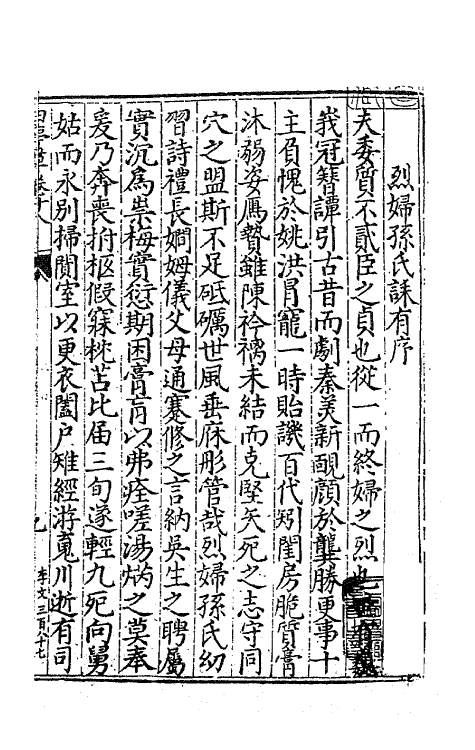 烈婦孫氏誄有序
夫委質不貳臣之貞也從一而終婦之烈也
我冠簪譚引古昔而劇秦美新靦顔於龔勝更事十
主負愧於姚洪冐寵一時貽譏百代矧閨房脆質膏
沐弱姿鴈贄雖陳衿褵未結而克堅矢死之志守同
穴之盟斯不足砥礪世風垂庥彤管哉烈婦孫氏幼
習詩禮長嫺姆儀父母通蹇修之言納吳生之聘屬
實沉爲祟梅實愆期困膏肓以弗痊嗟湯炳之莫奉
爰乃奔喪拊柩假寐枕苫比届三旬遂輕九死向舅
姑而永别掃閴室以更衣闔户雉經游䰟川逝有司
卷十八
九
李文三百八十七